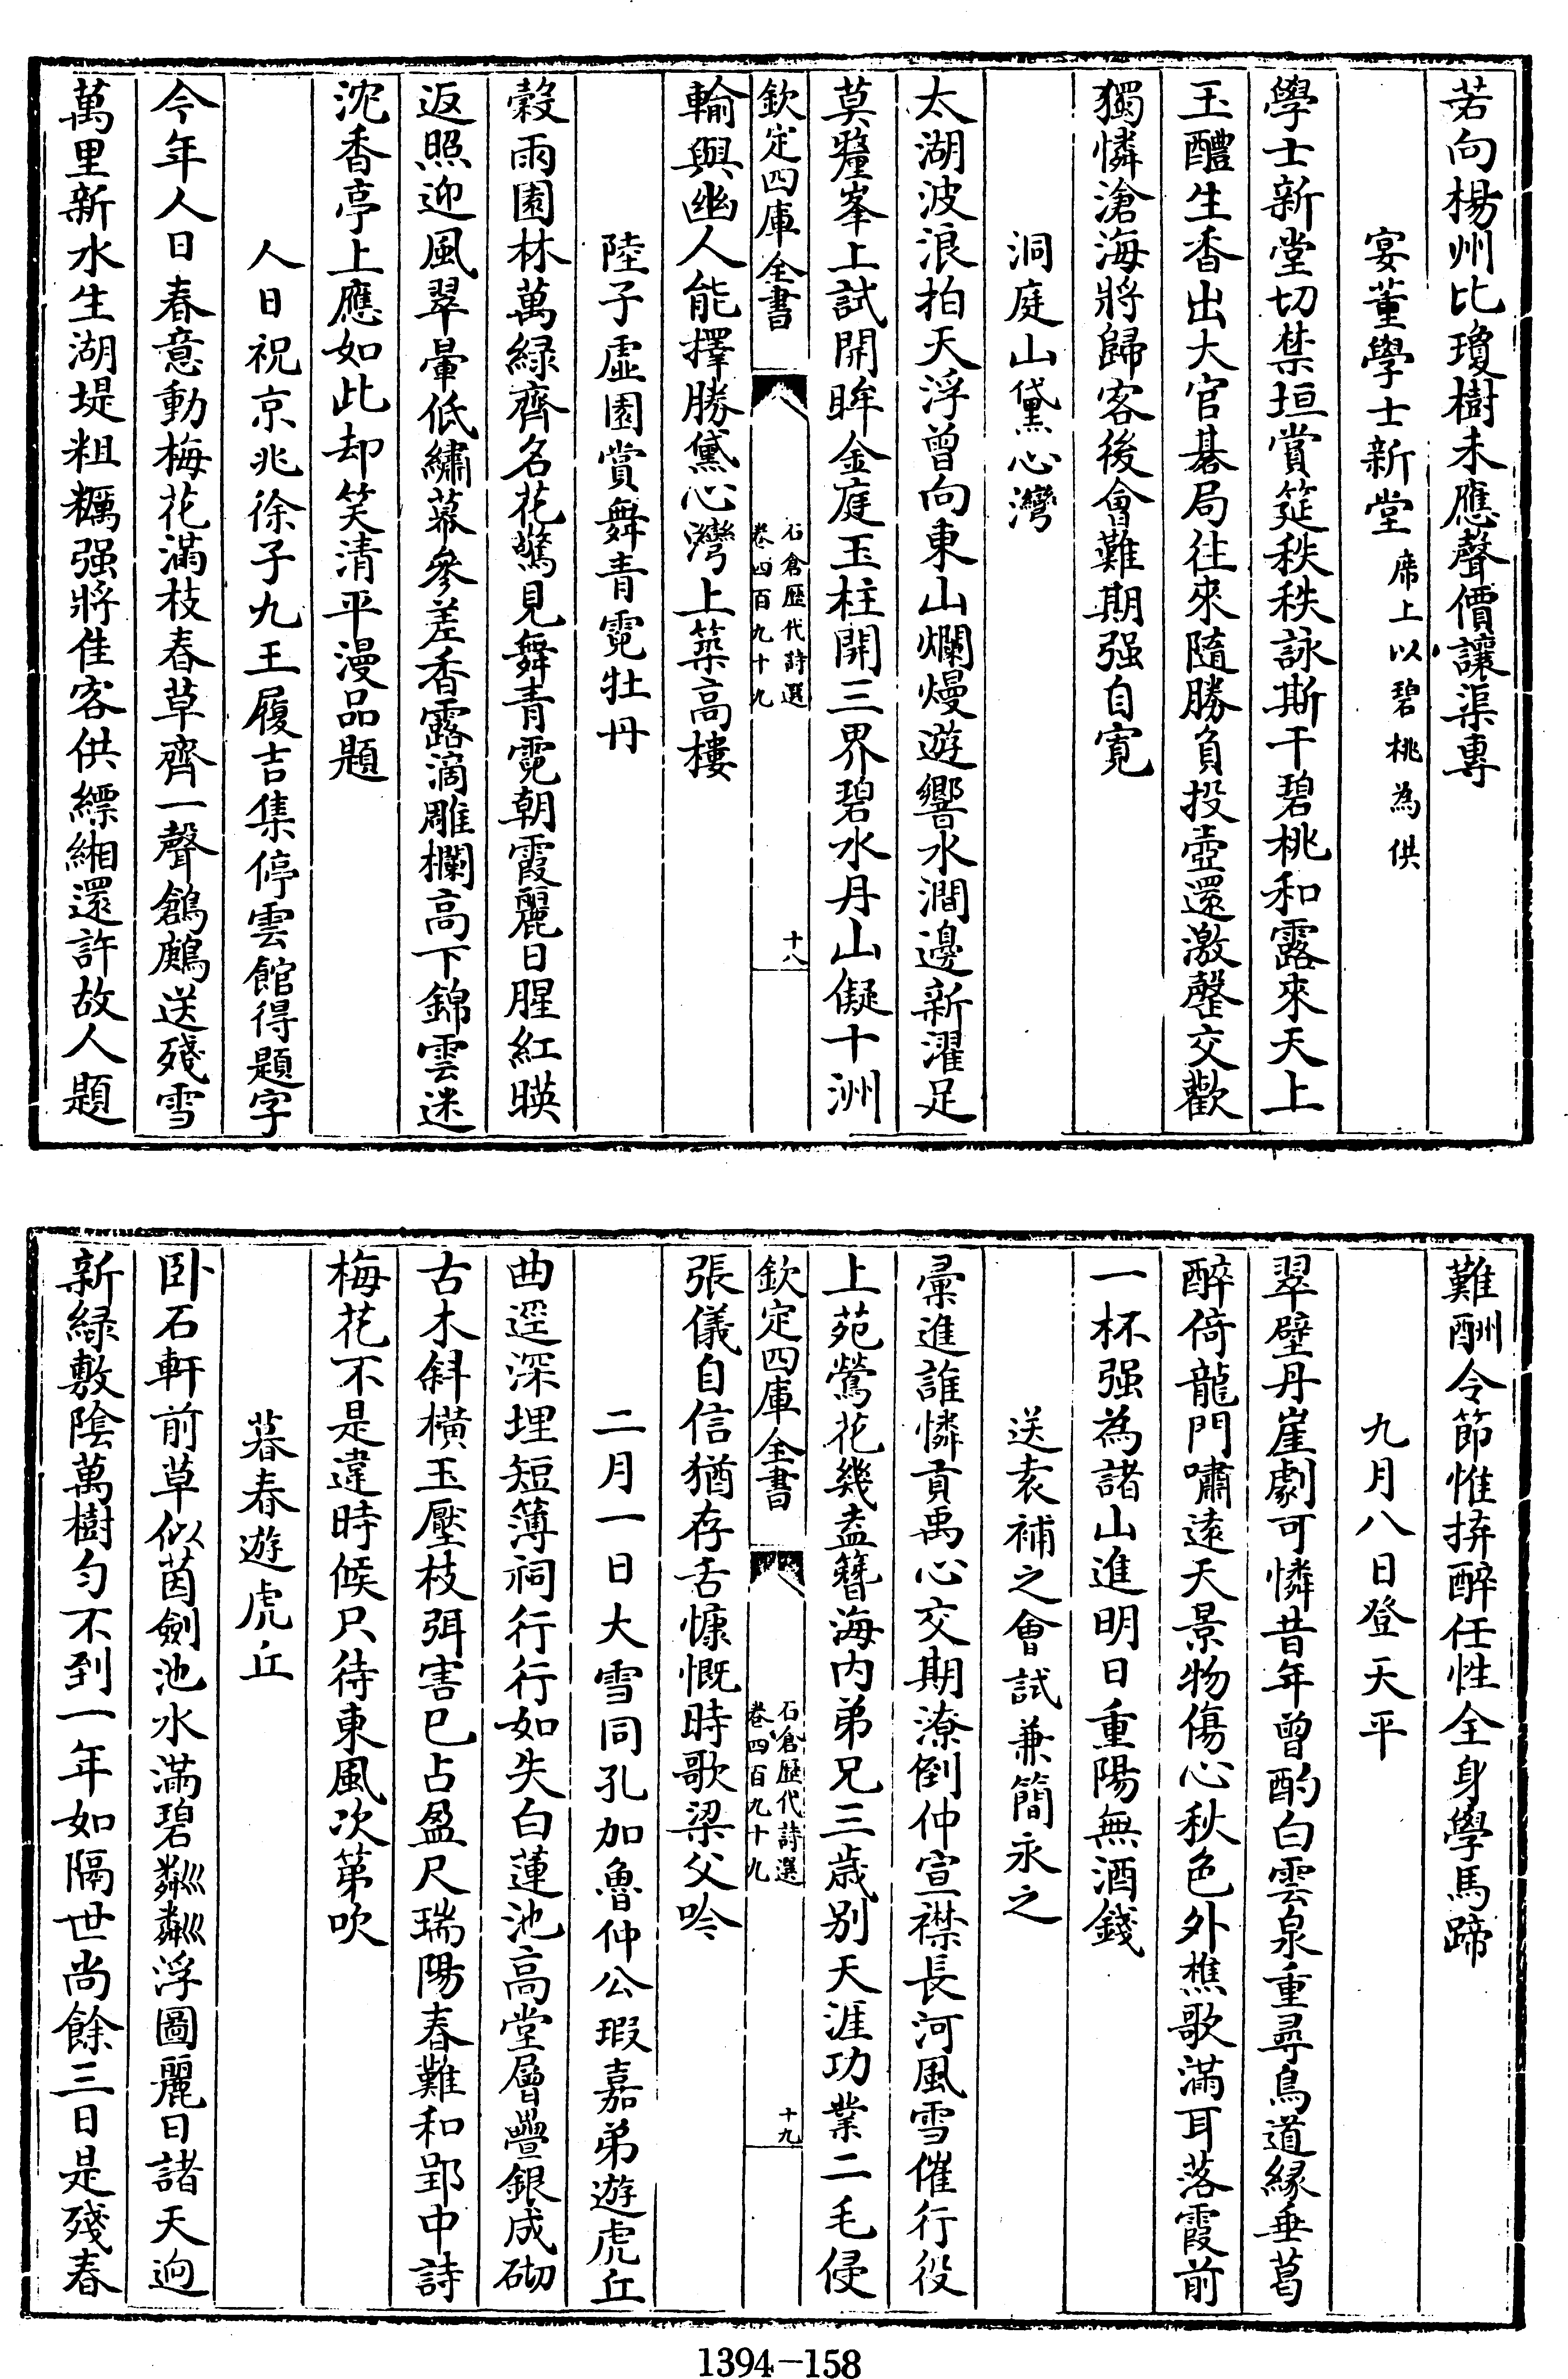 若向楊州比瓊樹未應聲價讓渠專
宴董學士新堂席上以碧桃為供
學士新堂切禁垣賞筵秩秩詠斯干碧桃和露來天上
玉醴生香出大官碁局往來隨勝負投壺還激罄交歡
獨憐滄海將歸客後會難期强自寛
洞庭山黛心灣
太湖波浪拍天浮曽向東山爛熳遊響水澗邊新濯足
莫釐峯上試開眸金庭玉柱開三界碧水丹山儗十洲
欽定四庫全書
石倉歴代詩選
卷四百九十九
十八
輸與幽人能擇勝黛心灣上築高樓
陸子虛園賞舞青霓牡丹
穀雨園林萬緑齊名花驚見舞青霓朝霞麗日腥紅暎
返照迎風翠暈低繡幕參差香露滴雕欄高下錦雲迷
沈香亭上應如此却笑清平漫品題
人日祝京兆徐子九王履吉集停雲館得題字
今年人日春意動梅花滿枝春草齊一聲鶬鶊送殘雪
萬里新水生湖堤粗糲强將佳客供縹緗還許故人題
難酬令節惟拚醉任性全身學馬蹄
九月八日登天平
翠壁丹崖劇可憐昔年曾酌白雲泉重尋鳥道緣垂葛
醉倚龍門嘯遠天景物傷心秋色外樵歌滿耳落霞前
一杯强為諸山進明日重陽無酒錢
送袁補之會試兼簡永之
彚進誰憐貢禹心交期潦倒仲宣襟長河風雪催行役
上苑鶯花幾盍簪海内弟兄三歳别天涯功業二毛侵
欽定四庫全書
石倉歴代詩選
卷四百九十九
十九
張儀自信猶存舌慷慨時歌梁父吟
二月一日大雪同孔加魯仲公瑕嘉弟遊虎丘
曲逕深埋短簿祠行行如失白蓮池高堂層疊銀成砌
古木斜橫玉壓枝弭害已占盈尺瑞陽春難和郢中詩
梅花不是違時候只待東風次第吹
暮春遊虎丘
卧石軒前草似茵劍池水滿碧粼粼浮圖麗日諸天逈
新緑敷陰萬樹匀不到一年如隔世尚餘三日是殘春
1394-158